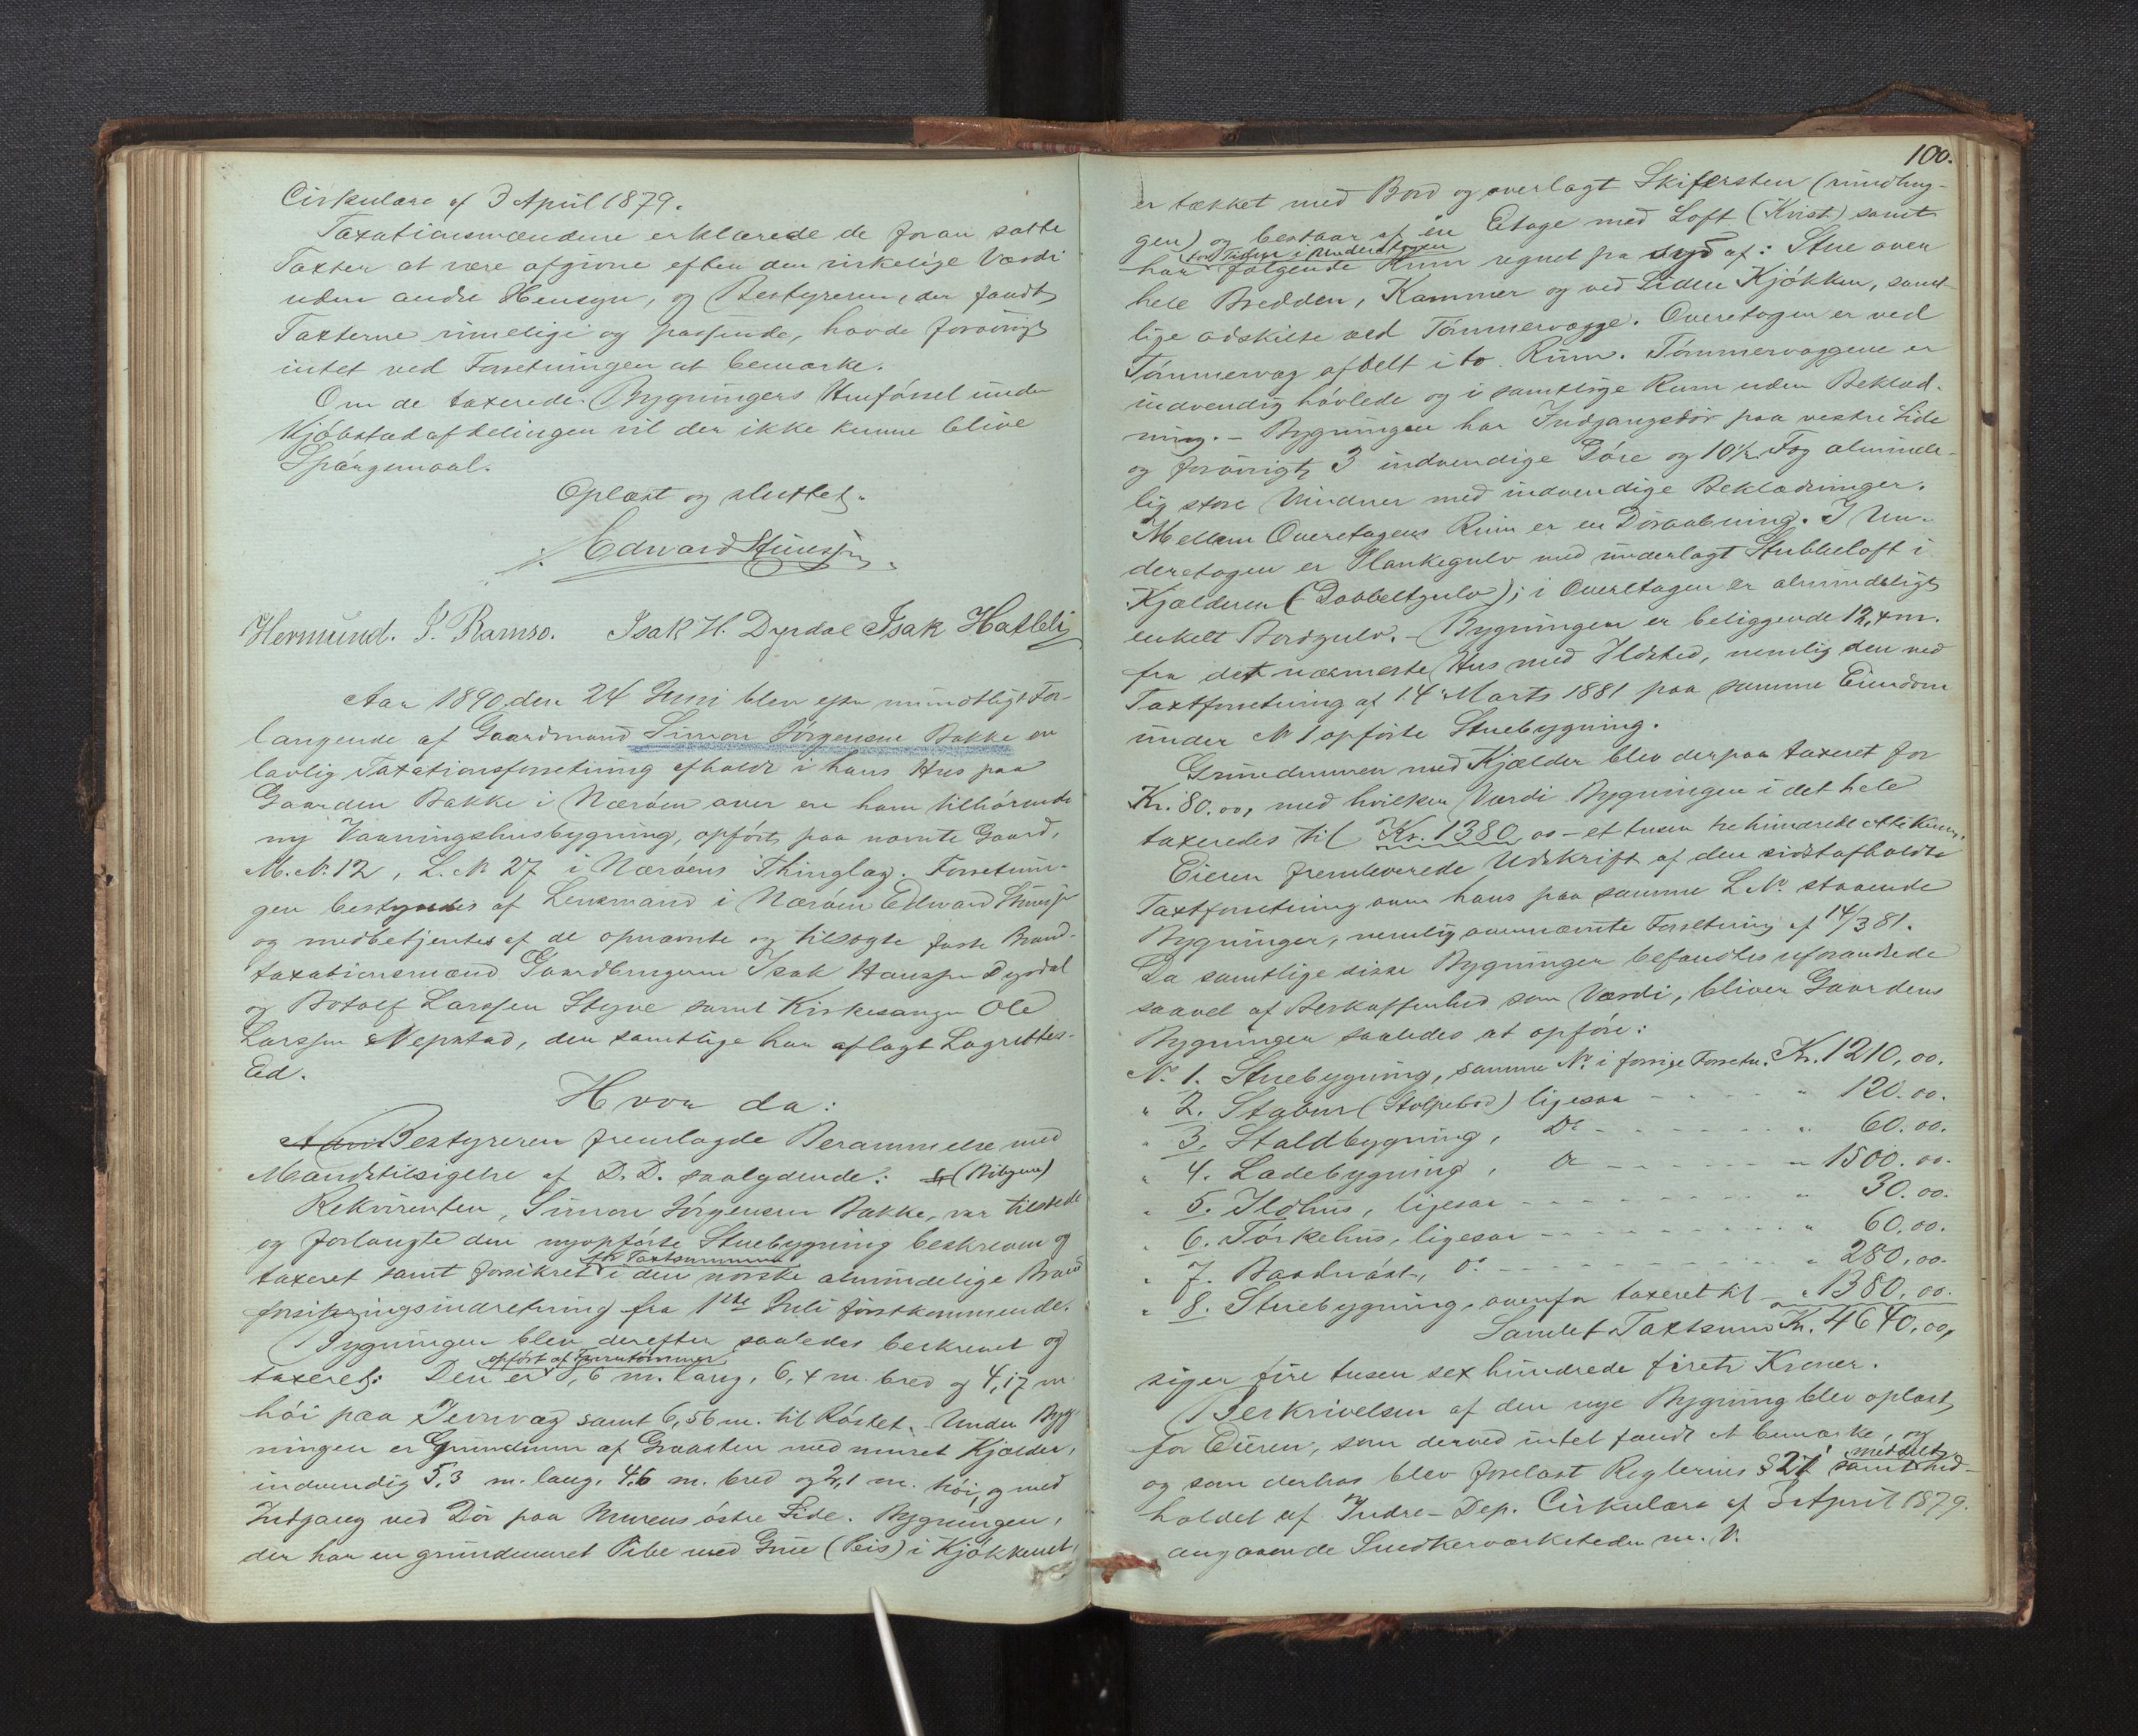 Cirkulære af 3 April 1879.
Taxationsmændene erklærede de foran satte
Taxter at være afgivne efter den virkelige Værdi
uden andre Hensyn, og Bestyreren, der fandt
Taxterne rimelige og passende, havde forøvrigt
intet ved Forretningen at bemærke.
Om de taxerede Bygningers Henførsel under
Kjøbstadafdelingen vil der ikke kunne blive
Spørgsmaal.
Oplæst og sluttet.
Edward
Hermund. J. Ramsø. Isak H. Dyrdal Isak Hatleli
Aar 1890 den 24 Juni blev efter mundtligt For-
langende af Gaardmand Simon Jørgensen Bakke en
lovlig Taxationsforretning afholdt i hans Hus paa
Gaarden Bakke i Nærøen over en ham tilhørende
ny Vaaningshusbygning, opført paa nævnte Gaard,
M. N. 12, L. N 27 i Nærøens Thinglag. Forretnin-
gen bestyredes af Lensmand i Nærøen Edward
og medbetjentes af de opnævnte og tilsagte faste Brand-
taxationsmænd Gaardbrugerne Isak Hanssen Dyrdal
og Botolf Larssen Stigne samt Kirkesanger Ole
Larssen Nepstad, der samtlige har aflagt Lagrettes-
Ed.
Hvor da:
Bestyreren fremlagde Berammelse med
Mandstilsigelse af D. D. saalydende: (Bilægges)
Rekvirenten, Simon Jørgensen Bakke, var tilstede
og forlangte den nyopførte Stuebygning beskreven og
taxeret samt forsikret for Taxtsummen i den norske almindelige Brand-
forsikringsindretning fra 1ste Juli førstkommende.
Bygningen blev derefter saaledes beskrevet og
taxeret: Den er opført af Furutømmer, 6 m. lang, 6,4 m. bred og 4,17 m
høi paa Jevnvæg samt 6,56 m. til Røstet. Under Byg-
ningen er Grundmur af Graasten med muret Kjælder,
indvendig 5,3 m. lang, 4,6 m. bred og 2,1 m. høi, og med
Indgang ved Dør paa Murens østre Side. Bygningen,
der har en grundmuret Pibe med Grue (Peis) i Kjøkkenet,
100.
er tækket med Bord og overlagt Skifersten (rundhug-
gen) og bestaar af én Etage med Loft (Kvist) samt
har for Tiden i Underetagen følgende Rum regnet fra syd af: Stue over
hele Bredden, Kammer og ved Siden Kjøkken, samt-
lige adskilte ved Tømmervægge. Overetagen er ved
Tømmervæg afdelt i to Rum. Tømmervæggene er
indvendig høvlede og i samtlige Rum uden Beklæd-
ning. – Bygningen har Indgangsdør paa vestre Side
og forøvrigt 3 indvendige Døre og 10½ Fag alminde-
lig store Vinduer med indvendige Beklædninger.
Mellem Overetagens Rum er en Døraabning. I Un-
deretagen er Plankegulv med underlagt Stubbeloft i
Kjælderen (Dobbeltgulv); i Overetagen er almindeligt
enkelt Bordgulv. – Bygningen er beliggende 12,4 m.
fra det nærmeste Hus med Ildsted, nemlig den ved
Taxtforretning af 14 Marts 1881 paa samme Eiendom
under N 1 opførte Stuebygning.
Grundmuren med Kjælder blev derpaa taxeret for
Kr. 80.00, med hvilken Værdi Bygningen i det hele
taxeredes til Kr. 1380,00 – et tusen trehundrede otti Kroner.
Eieren fremleverede Udskrift af den sidstafholdte
Taxtforretning over hans paa samme L No staaende
Bygninger, nemlig ovennævnte Forretning af 14/3 81.
Da samtlige disse Bygninger befandtes uforandrede
saavel af Beskaffenhed som Værdi, bliver Gaardens
Bygninger saaledes at opføre:
No 1. Stuebygning, samme No i forrige Forretn. Kr. 1210,00.
" 2. Stabur (Stolpebod) ligesaa - - - - " 120.00.
" 3. Staldbygning, Do - - - - - - " 60.00.
" 4. Ladebygning, Do - - - - - - " 1500.00.
" 5. Ildhus, ligesaa - - - - - - - " 30.00.
" 6. Tørkehus, ligesaa - - - - - - - " 60,00.
" 7. Baadnøst, Do - - - - - - - " 280,00.
" 8. Stuebygning, ovenfor taxeret til - " 1380,00.
Samlet Taxtsum Kr. 4640,00,
siger fire tusen sex hundrede fireti Kroner.
Beskrivelsen af den nye Bygning blev oplæst
for Eieren, som derved intet fandt at bemærke, og
og som derhos blev forelæst Reglernes § 21 samt meddelt Ind-
holdet af Indre-Dep. Cirkulære af 3 April 1879.
angaaende Snedkerværksteder m. V.